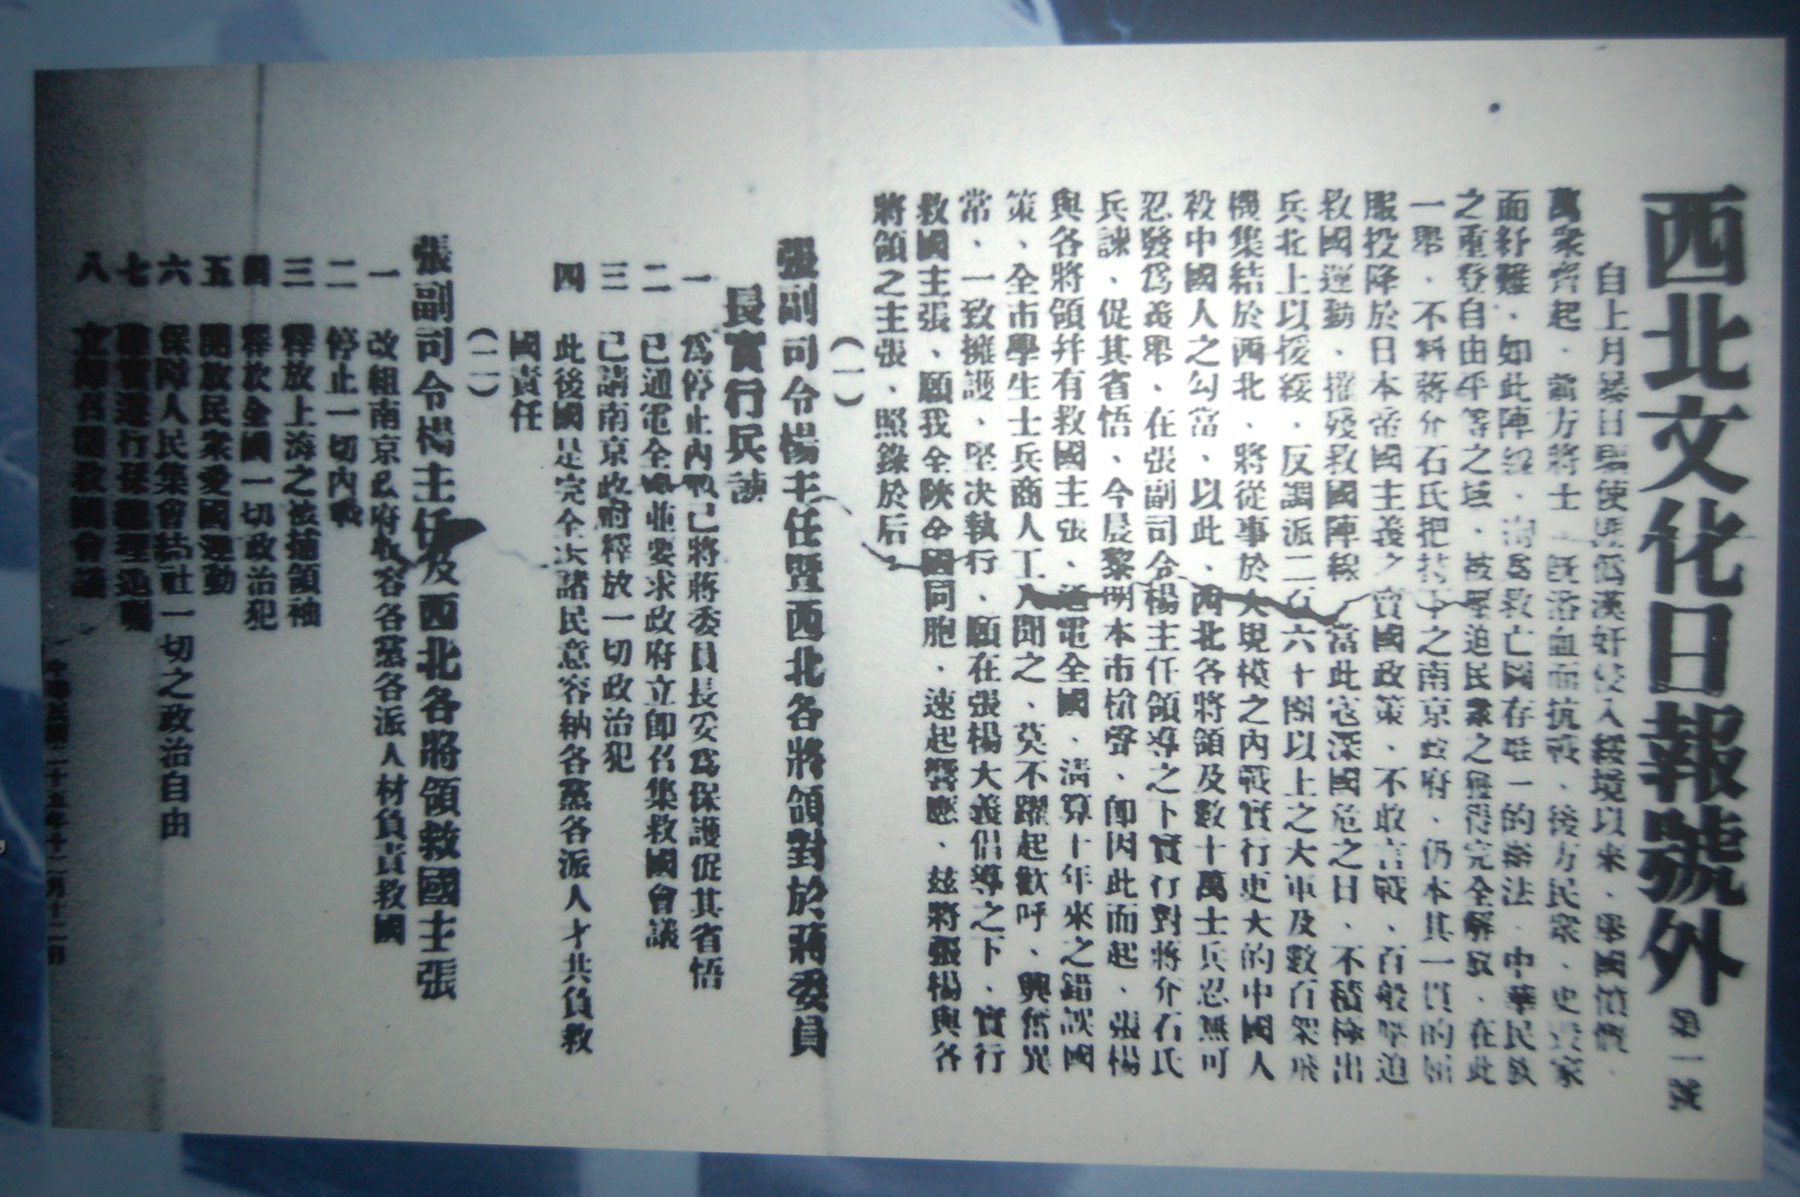 西北文化日報號外 第一號
自上月暴日驅使匪僞漢奸侵入綏境以來、舉國憤慨、
萬衆齊起、前方將士、既浴血而抗戰、後方民衆、更毀家
而紓難、如此陣線、洵爲救亡圖存唯一的辦法、中華民族
之重登自由平等之域、被壓迫民衆之獲得完全解放、在此
一舉、不料蔣介石氏把持下之南京政府、仍本其一貫的屈
服投降於日本帝國主義之賣國政策、不敢言戰、百般壓迫
救國運動、摧殘救國陣線、當此寇深國危之日、不積極出
兵北上以援綏、反調派二百六十團以上之大軍及數百架飛
機集結於西北、將從事於大規模之內戰實行更大的中國人
殺中國人之勾當、以此、西北各將領及數十萬士兵忍無可
忍發爲義舉、在張副司令楊主任領導之下實行對蔣介石氏
兵諫、促其省悟、今晨黎明本市槍聲、卽因此而起、張楊
與各將領幷有救國主張、通電全國、淸算十年來之錯誤國
策、全市學生士兵商人工人聞之、莫不躍起歡呼、興奮異
常、一致擁護、堅决執行、願在張楊大義倡導之下、實行
救國主張、願我全陝全國同胞、速起響應、茲將張楊與各
將領之主張、照錄於后、
(一)
張副司令楊主任暨西北各將領對於蔣委員
長實行兵諫
一 爲停止內戰已將蔣委員長妥爲保護促其省悟
二 已通電全國並要求政府立卽召集救國會議
三 已請南京政府釋放一切政治犯
四 此後國是完全决諸民意容納各黨各派人才共負救
國責任
(二)
張副司令楊主任及西北各將領救國主張
一 改組南京政府收容各黨各派人材負責救國
二 停止一切內戰
三 釋放上海之被捕領袖
四 釋放全國一切政治犯
五 開放民衆愛國運動
六 保障人民集會結社一切之政治自由
七 確實遵行孫總理遺囑
八 立卽召開救國會議
中華民國二十五年十二月十二日